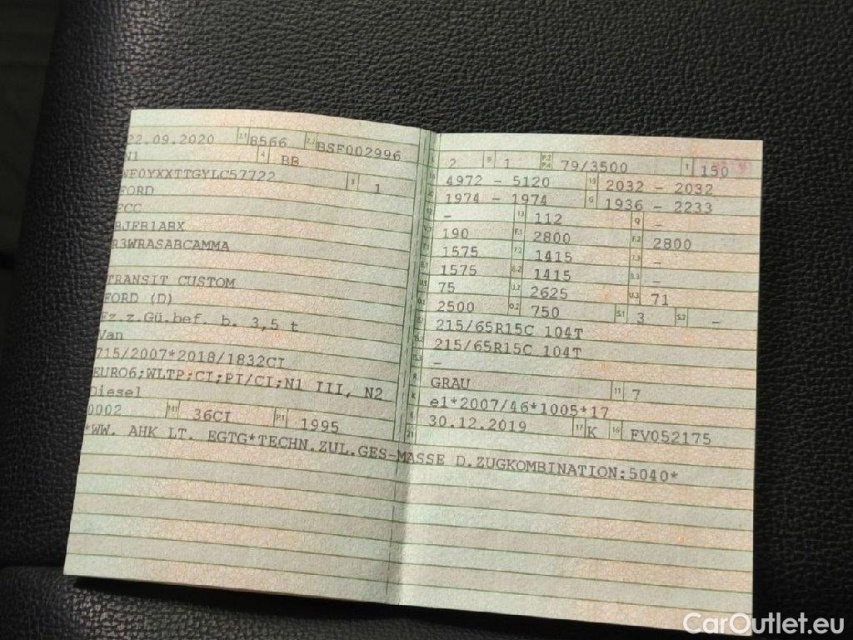 22.09.2020 8566 BSF002996
N1 4 BB
WF0YXXTTGYLC57722 1
FORD
FCC
BJFB1ABX
R3WRASABCAMMA
TRANSIT CUSTOM
FORD (D)
Fz.z.Gü.bef. b. 3,5 t
Van
715/2007*2018/1832CI
EURO6;WLTP;CI;PI/CI;N1 III, N2
Diesel
0002 36CI 1995
*WW. AHK LT. EGTG*TECHN.ZUL.GES-MASSE D.ZUGKOMBINATION:5040*
2 1 79/3500 150
4972 - 5120 2032 - 2032
1974 - 1974 1936 - 2233
- 112 -
190 2800 2800
1575 1415 -
1575 1415 -
75 2625 71
2500 750 3 -
215/65R15C 104T
215/65R15C 104T
-
GRAU 7
e1*2007/46*1005*17
30.12.2019 K FV052175
CarOutlet.eu